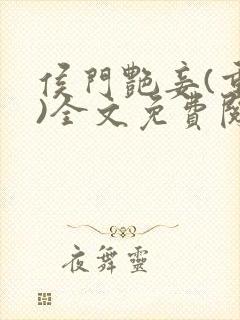 侯門艷妾(
)全文免費
夜舞靈